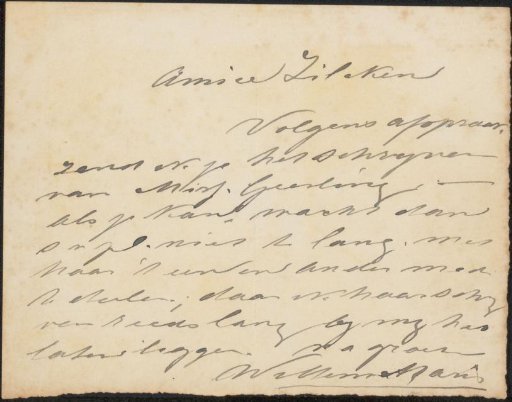 Amice Zilcken
Volgens afspraak
zend ik je het schrijven
van Mej. Geerling, —
als je kan, wacht dan
s v pl. niet te lang. met
haar 't een en ander mede
te deelen, daar ik haar schrij
ven reeds lang by my heb
laten liggen. na groeten
Willem Maris